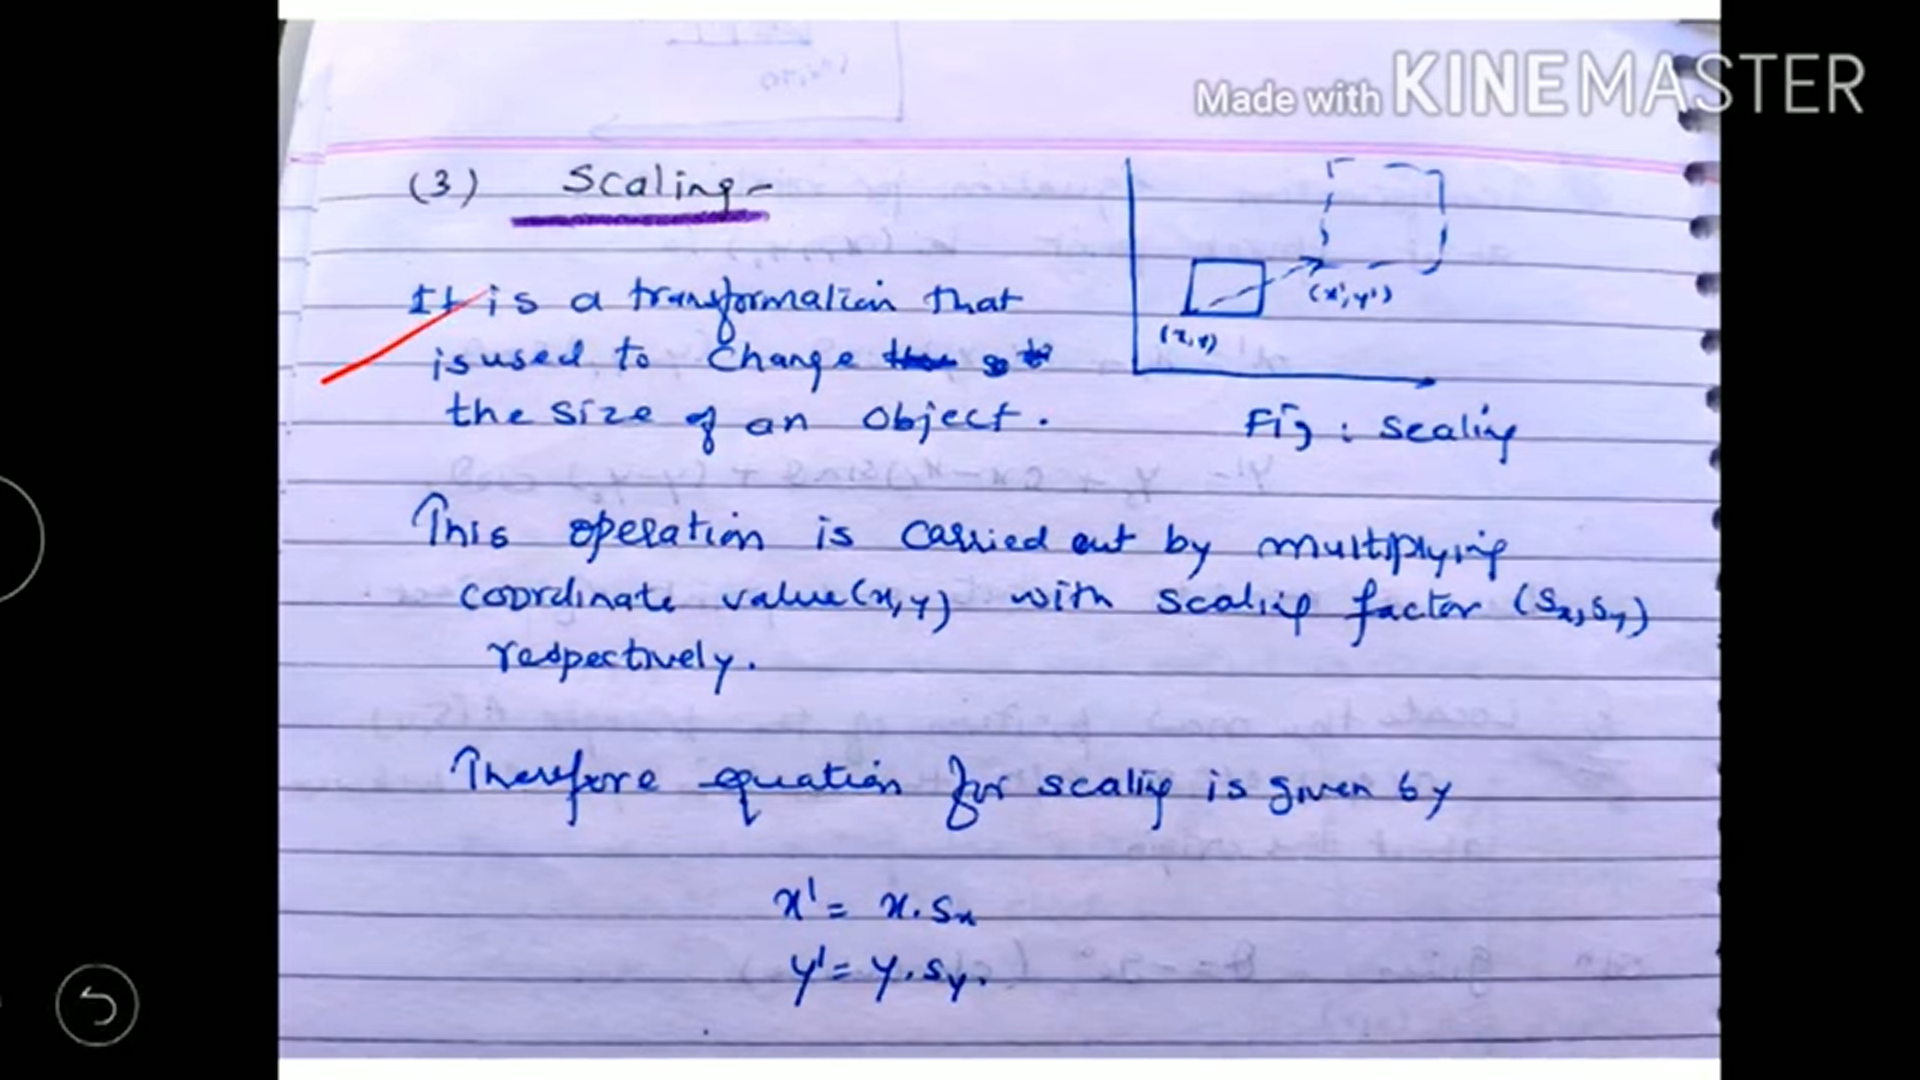 Made with KINEMASTER
(3) Scaling-
It is a transformation that
is used to change
the size of an object.
(x',y')
(x,y)
Fig : Scaling
This operation is carried out by multiplying
coordinate value(x,y) with scaling factor (Sx,Sy)
respectively.
Therefore equation for scaling is given by
x' = x.Sx
y' = y.Sy.